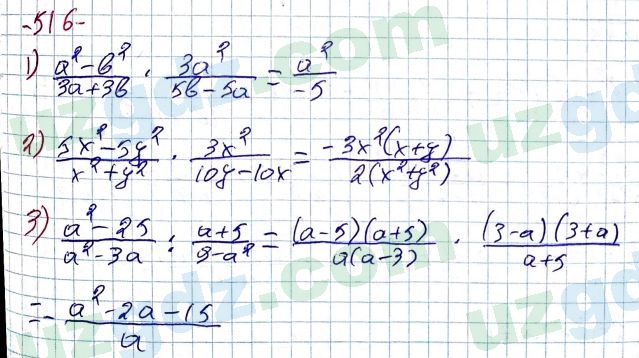 -516-
1) (a²-b²)/(3a+3b) · 3a²/(5b-5a) = a²/-5
2) (5x²-5y²)/(x²+y²) · 3x²/(10y-10x) = -3x²(x+y)/2(x²+y²)
3) (a²-25)/(a²-3a) : (a+5)/(9-a²) = (a-5)(a+5)/a(a-3) · (3-a)(3+a)/(a+5)
= -(a²-2a-15)/a